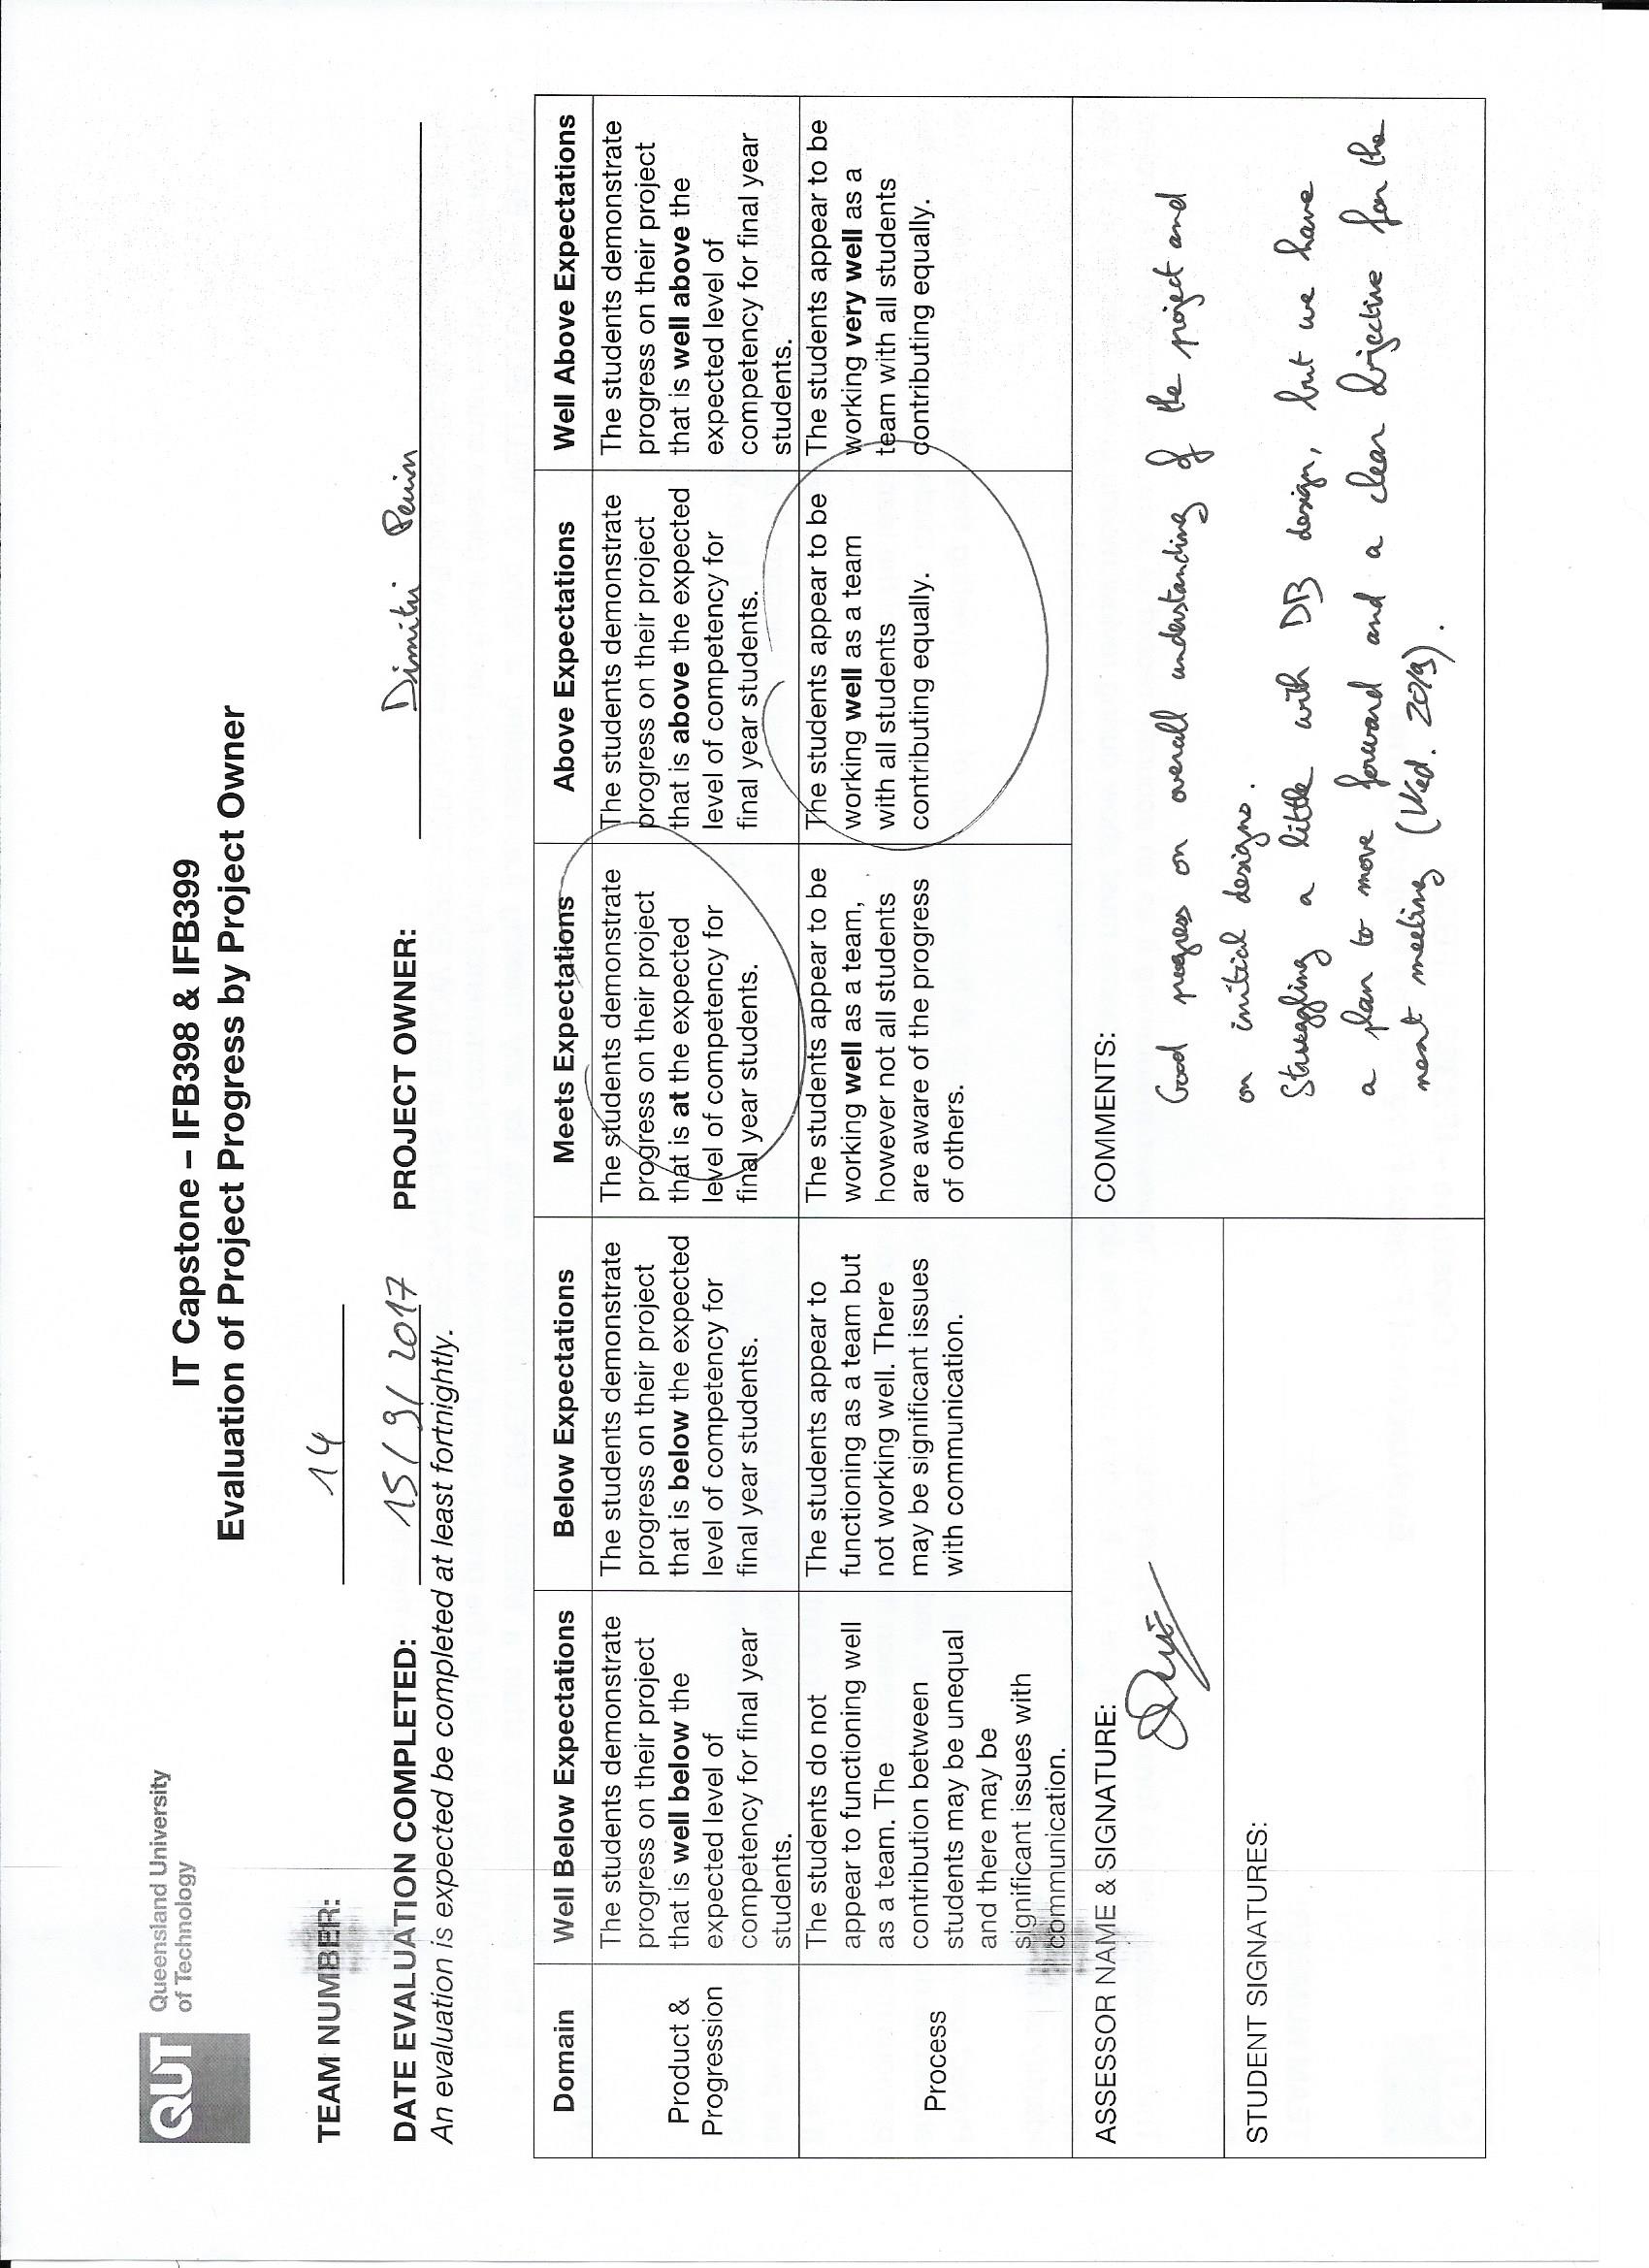 QUT
Queensland University
of Technology
IT Capstone – IFB398 & IFB399
Evaluation of Project Progress by Project Owner
TEAM NUMBER: 14
DATE EVALUATION COMPLETED: 15/9/2017 PROJECT OWNER: Dimitri Perrin
An evaluation is expected be completed at least fortnightly.
Domain
Well Below Expectations
Below Expectations
Meets Expectations
Above Expectations
Well Above Expectations
Product &
Progression
The students demonstrate
progress on their project
that is well below the
expected level of
competency for final year
students.
The students demonstrate
progress on their project
that is below the expected
level of competency for
final year students.
The students demonstrate
progress on their project
that is at the expected
level of competency for
final year students.
The students demonstrate
progress on their project
that is above the expected
level of competency for
final year students.
The students demonstrate
progress on their project
that is well above the
expected level of
competency for final year
students.
Process
The students do not
appear to functioning well
as a team. The
contribution between
students may be unequal
and there may be
significant issues with
communication.
The students appear to
functioning as a team but
not working well. There
may be significant issues
with communication.
The students appear to be
working well as a team,
however not all students
are aware of the progress
of others.
The students appear to be
working well as a team
with all students
contributing equally.
The students appear to be
working very well as a
team with all students
contributing equally.
ASSESSOR NAME & SIGNATURE:
STUDENT SIGNATURES:
COMMENTS:
Good progress on overall understanding of the project and
on initial designs.
Struggling a little with DB design, but we have
a plan to move forward and a clear objective for the
next meeting (Wed. 20/9).